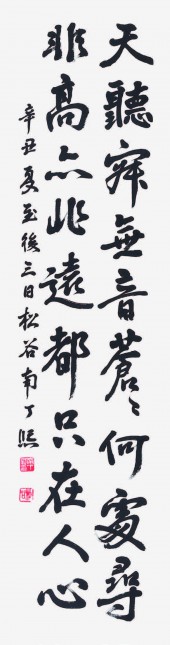 天聽寂無音蒼〻何處尋
非高亦非遠都只在人心
辛丑夏至後三日松谷南丁熙